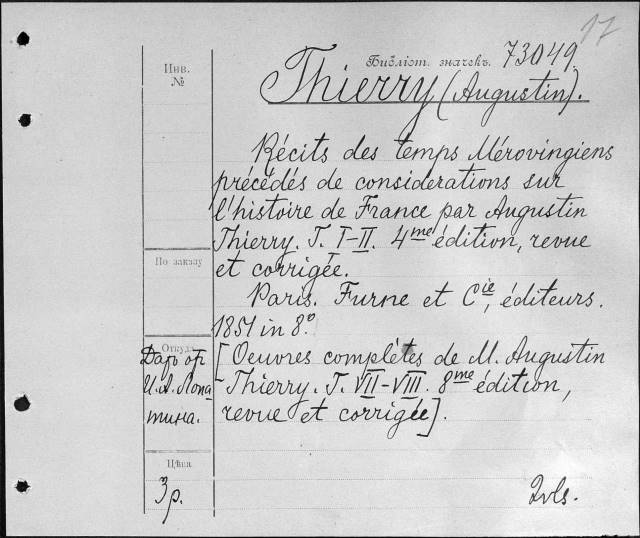 17
Библіот. значекъ. 73049.
Thierry (Augustin).
Инв.
№
Récits des temps Mérovingiens
précédés de considerations sur
l'histoire de France par Augustin
Thierry. T. I-II. 4me édition, revue
et corrigée.
По заказу
Paris. Furne et Cie, éditeurs.
1851 in 8º.
Откуда
Даръ от
И. А. Лопа
тина.
[Oeuvres complètes de M. Augustin
Thierry. T. VII-VIII. 8me édition,
revue et corrigée].
Цѣна
3 р.
2 vls.